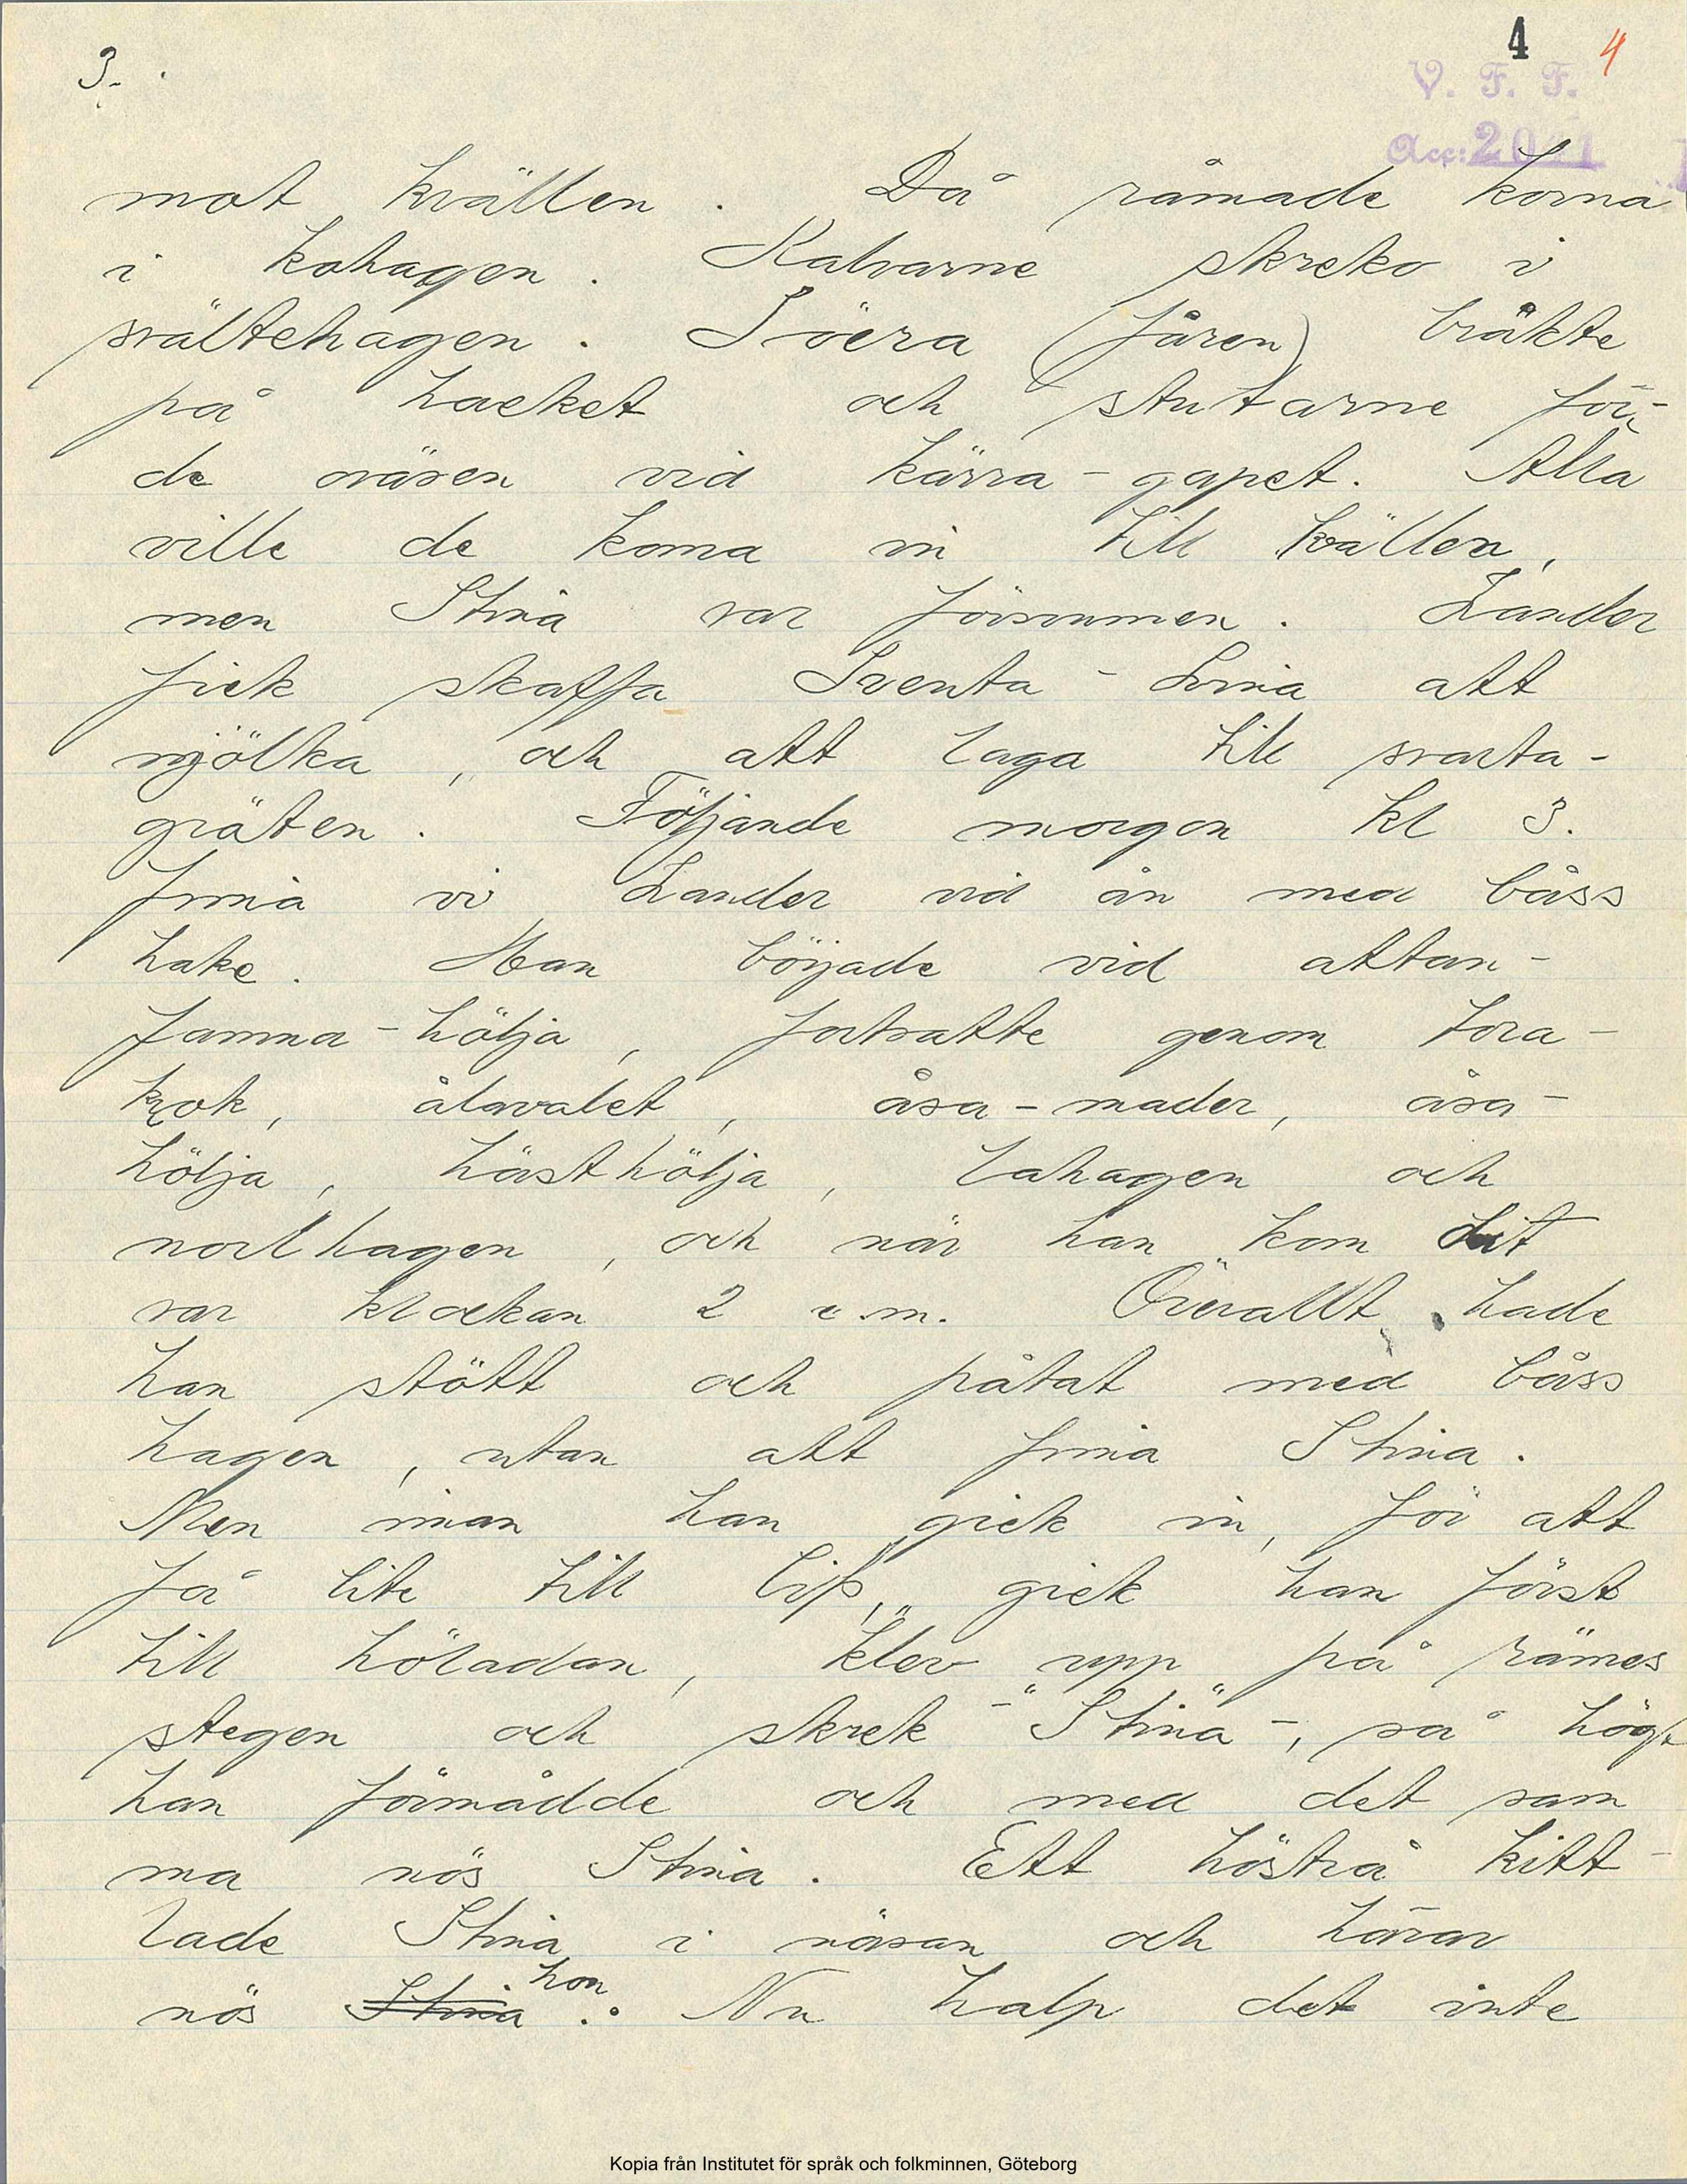 3.
4 4
V. F. F.
Acc: 2041
mot kvällen. Då råmade korna
i kohagen. Kalvarne skreko i
svältehagen. Söera (fåren) bräkte
på backet och stutarne för-
de oväsen vid kärra-gapet. Alla
ville de koma in till kvällen,
men Stina var försvunnen. Zander
fick skaffa Sventa-Lovisa att
mjölka, och att laga till svarta-
gräten. Följande morgon kl 3.
finna vi Zander vid ån med båss
hake. Han började vid attan-
famna-hölja, fortsatte genom tora-
krok, ålavalet, åsa-mader, åsa-
hölja, hästhölja, lahagen och
norlhagen, och när han kom dit
var klockan 2 e.m. Överallt hade
han stött och påtat med båss
hagen, utan att finna Stina.
Men innan han gick in, för att
få lite till livs, gick han först
till höladan, klev upp på rämes
stegen och skrek -"Stina"-, så högt
han förmådde och med det sam
ma nös Stina. Ett höstrå kitt-
lade Stina i näsan och härav
nös Stina hon. Nu halp det inte
Kopia från Institutet för språk och folkminnen, Göteborg